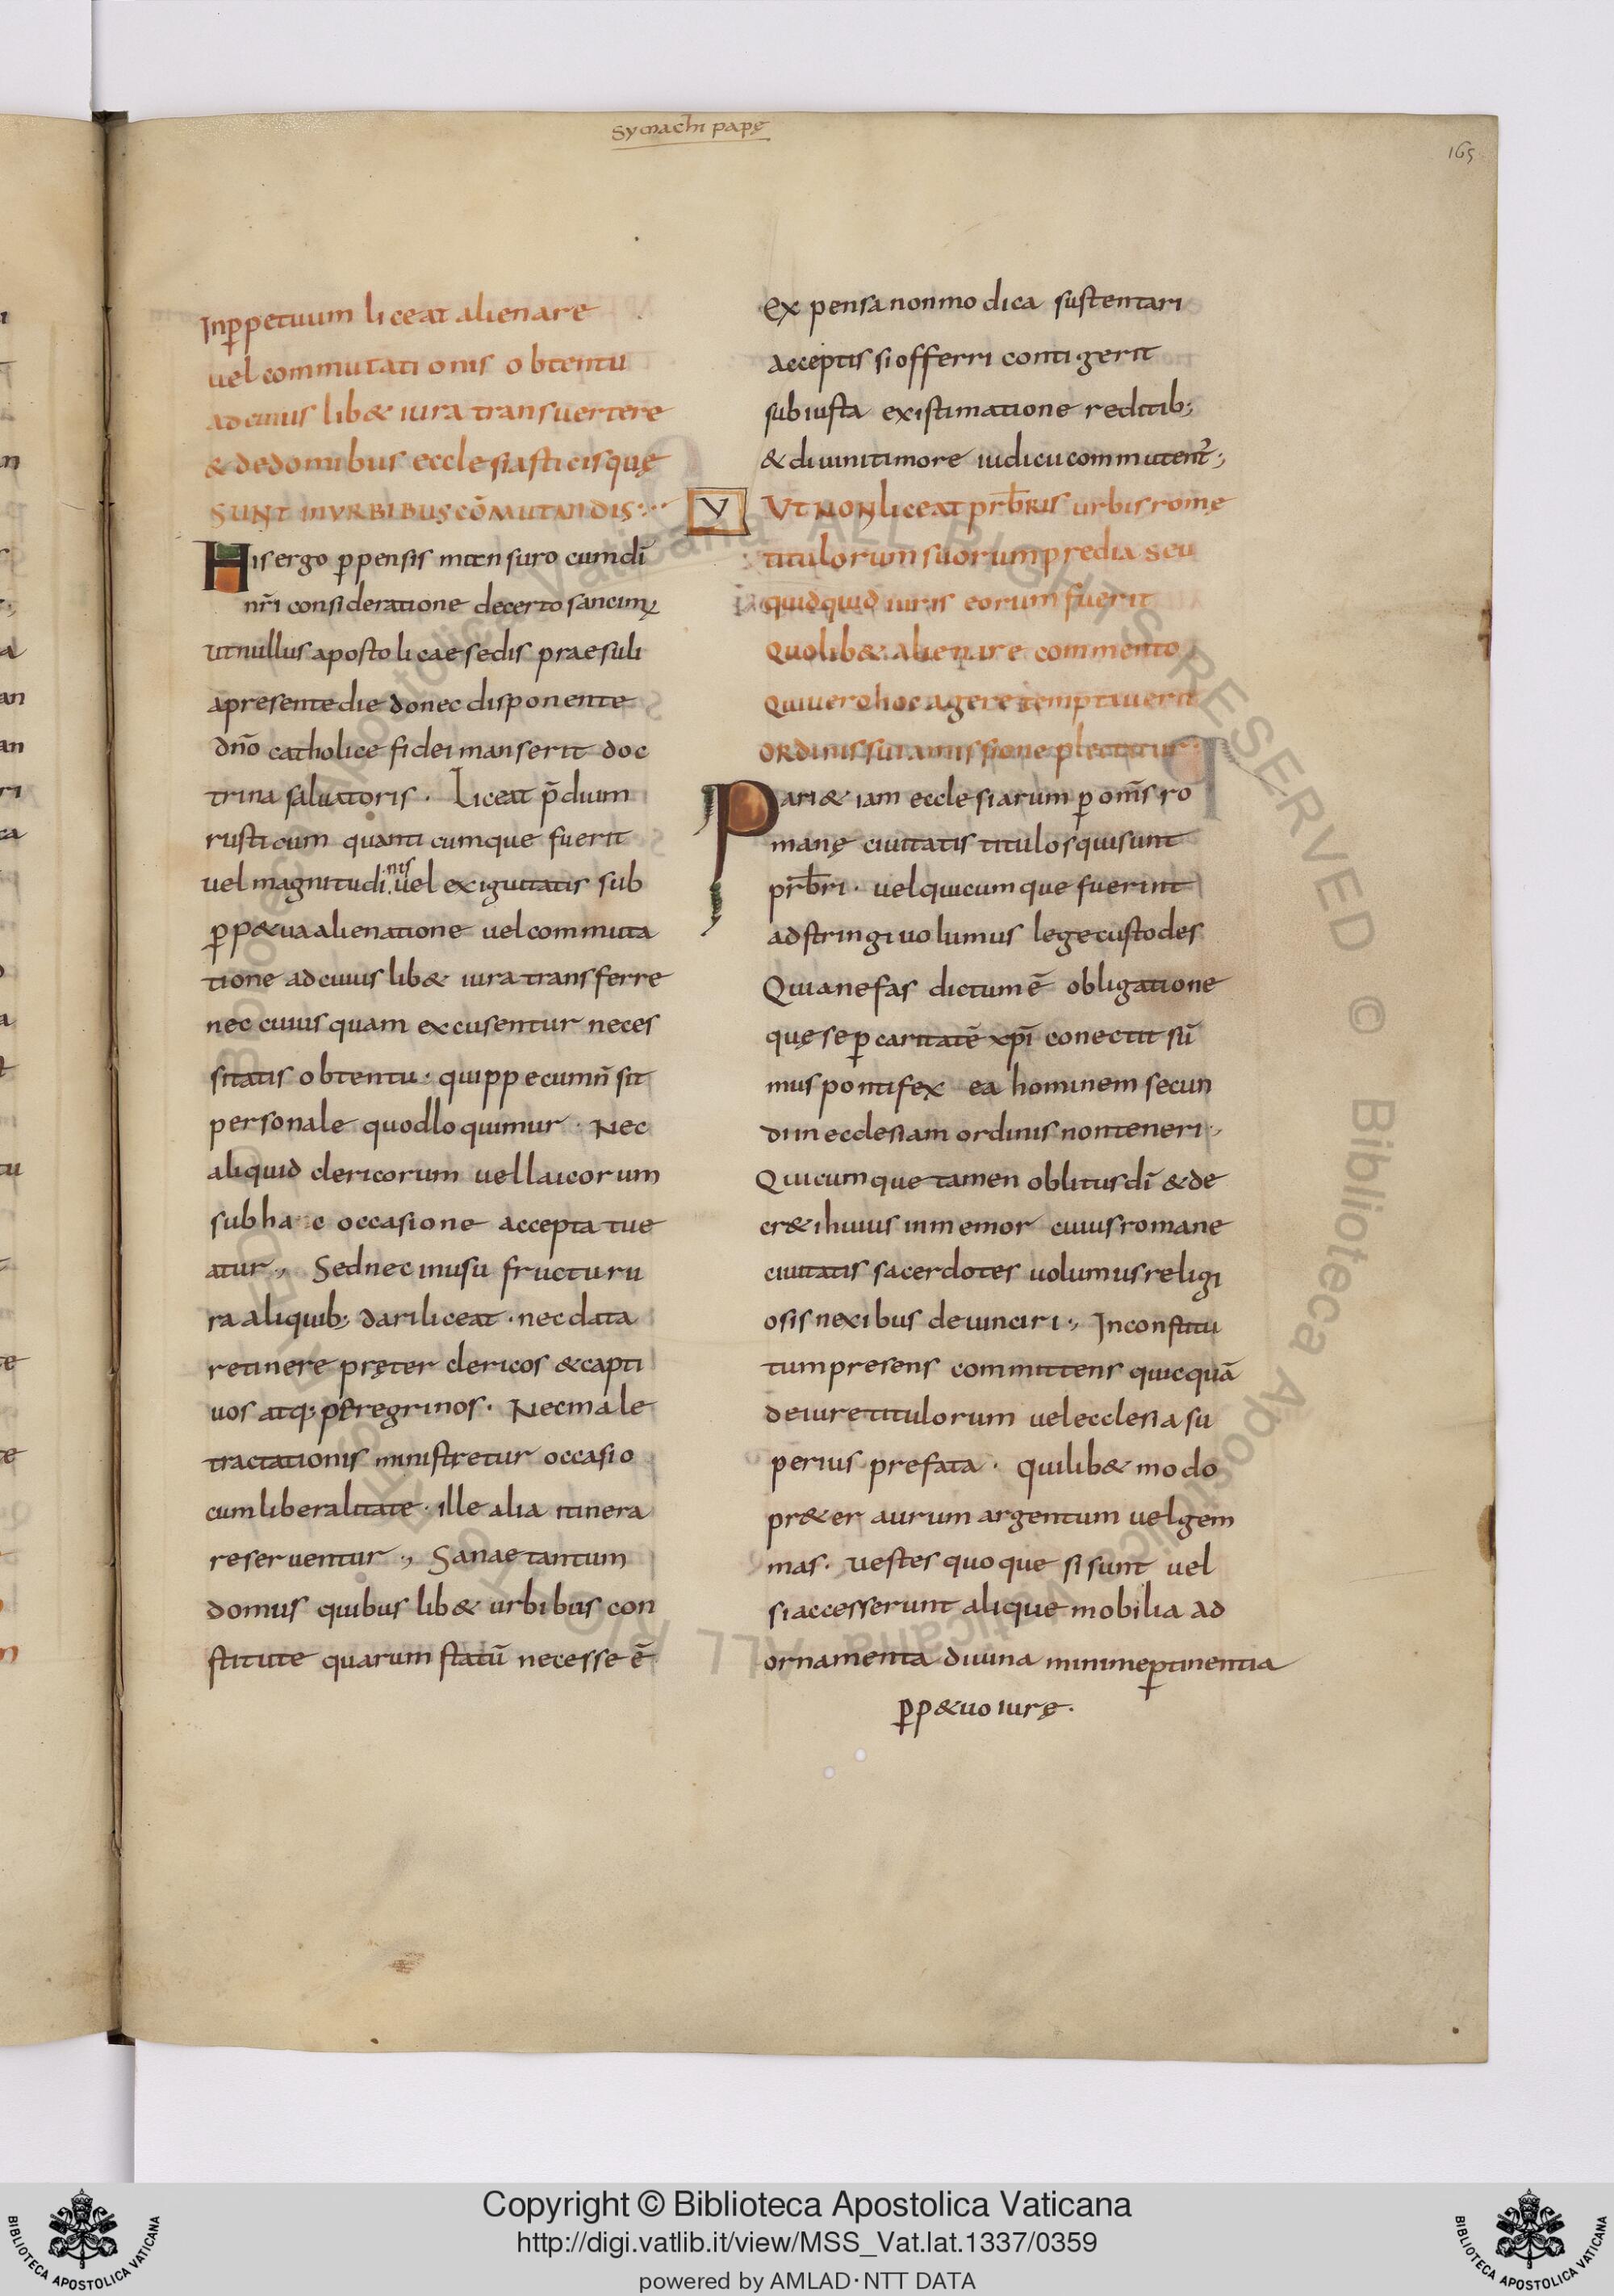 Symachi papę
165
Inp̱petuum liceat alienare
uel commutationis obtentu
ad cuius lib& iura transuertere
& de domibus ecclesiasticis quę
SUNT IN VRBIBUS CŌMUTANDIS
His ergo p̱pensis mtensuro cum dī
nr̄i consideratione decerto sancim;
ut nullus apostolicae sedis praesuli
a presente die donec disponente
dn̄o catholice fidei manserit doc
trina saluatoris. Liceat p̄dium
rusticum quanticumque fuerit
uel magnitudinis uel exiguitatis sub
p̱p&ua alienatione uel commuta
tione ad cuius lib& iura transferre
nec cuiusquam excusentur neces
sitatis obtentu · quippe cum n̄ sit
personale quod loquimur · Nec
aliquid clericorum uel laicorum
sub hac occasione accepta tue
atur., Sed nec in usu fructu ru
ra aliquib; dari liceat · nec data
retinere pręter clericos & capti
uos atq; peregrinos. Nec male
tractationis ministretur occasio
cum liberalitate · ille alia itinera
reseruentur., Sanae tantum
domus quibus lib& urbibus con
stitute quarum statū necesse ē
expensa non modica sustentari
acceptis si offerri contigerit
sub iusta existimatione reditib;
& diuini timore iudicii commutent᷒;
V
Ut NON liceat prb̄ris urbis romę
titulorum suorum predia seu
quidquid iuris eorum fuerit
quolib& alienare commento
qui uero hoc agere temptauerit
ordinis sui amissione plectitur
Pari & iam ecclesiarum p̱ om̄s ro
manę ciuitatis titulos qui sunt
prb̄ri · uel quicumque fuerint
adstringi uolumus lege custodes
Quia nefas dictum ē obligatione
quę se p̱ caritatē xpī conectit sū
mus pontifex ea hominem secun
di in ecclesiam ordinis non teneri.,
Quicumque tamen oblitus dī & de
cr&i huius inmemor cuius romane
ciuitatis sacerdotes uolumus religi
osis nexibus deuinciri., In constitu
tum presens committens quicquā
de iure titulorum uel ecclesia su
perius prefata · quilib& modo
pr&er aurum argentum uel gem
mas · uestes quoque si sunt uel
si accesserunt alique mobilia ad
ornamenta diuina minime p̱tinentia
p̱p&uo iurę.
Copyright © Biblioteca Apostolica Vaticana
http://digi.vatlib.it/view/MSS_Vat.lat.1337/0359
powered by AMLAD·NTT DATA
BIBLIOTECA APOSTOLICA VATICANA
BIBLIOTECA APOSTOLICA VATICANA